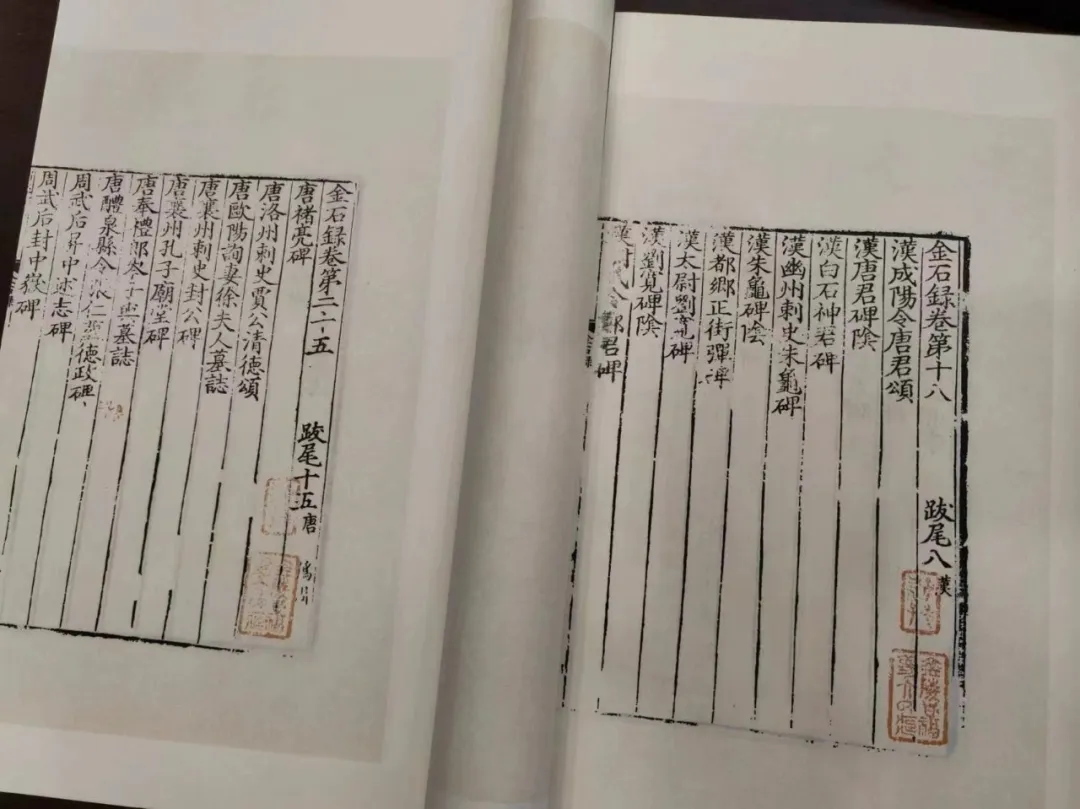 金石録卷第十八
跋尾八 漢
漢成陽令唐君頌
漢唐君碑陰
漢白石神君碑
漢幽州刺史朱龜碑
漢朱龜碑陰
漢都鄉正街彈碑
漢太尉劉寬碑
漢劉寬碑陰
君碑
金石録卷第二十五
跋尾十五 唐
唐褚亮碑
唐洛州刺史賈公清德頌
唐歐陽詢妻徐夫人墓誌
唐襄州刺史封公碑
唐襄州孔子廟堂碑
唐奉禮郎岑子輿墓誌
唐醴泉縣令張仁蘊德政碑
周武后昇中述志碑
周武后封中嶽碑